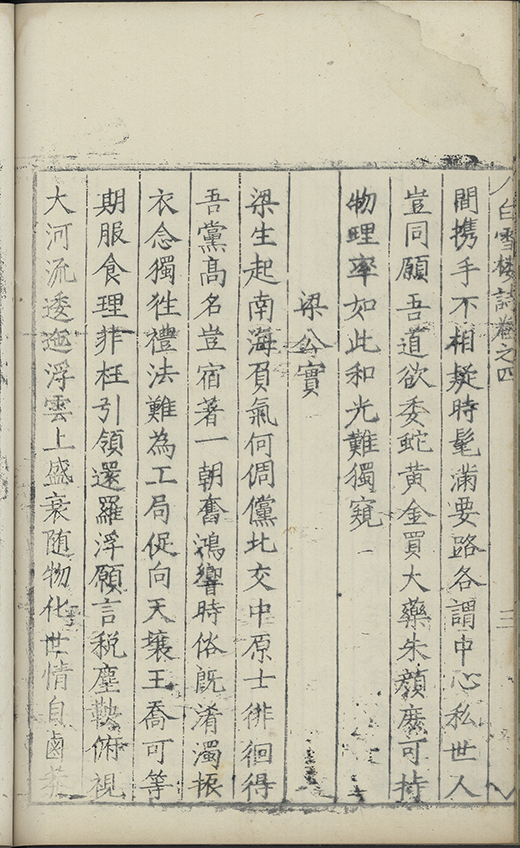 白雪樓詩卷之四
三
間携手不相疑時髦滿要路各謂中心私世人
豈同願吾道欲委蛇黃金買大藥朱顏庶可持
物理率如此和光難獨窺
梁公實
梁生起南海負氣何倜儻北交中原士徘徊得
吾黨高名豈宿著一朝奮鴻響時俗旣淆濁振
衣念獨徃禮法難為工局促向天壤王喬可等
期服食理非枉引領還羅浮願言稅塵鞅俯視
大河流逶迤浮雲上盛衰随物化世情自鹵莽